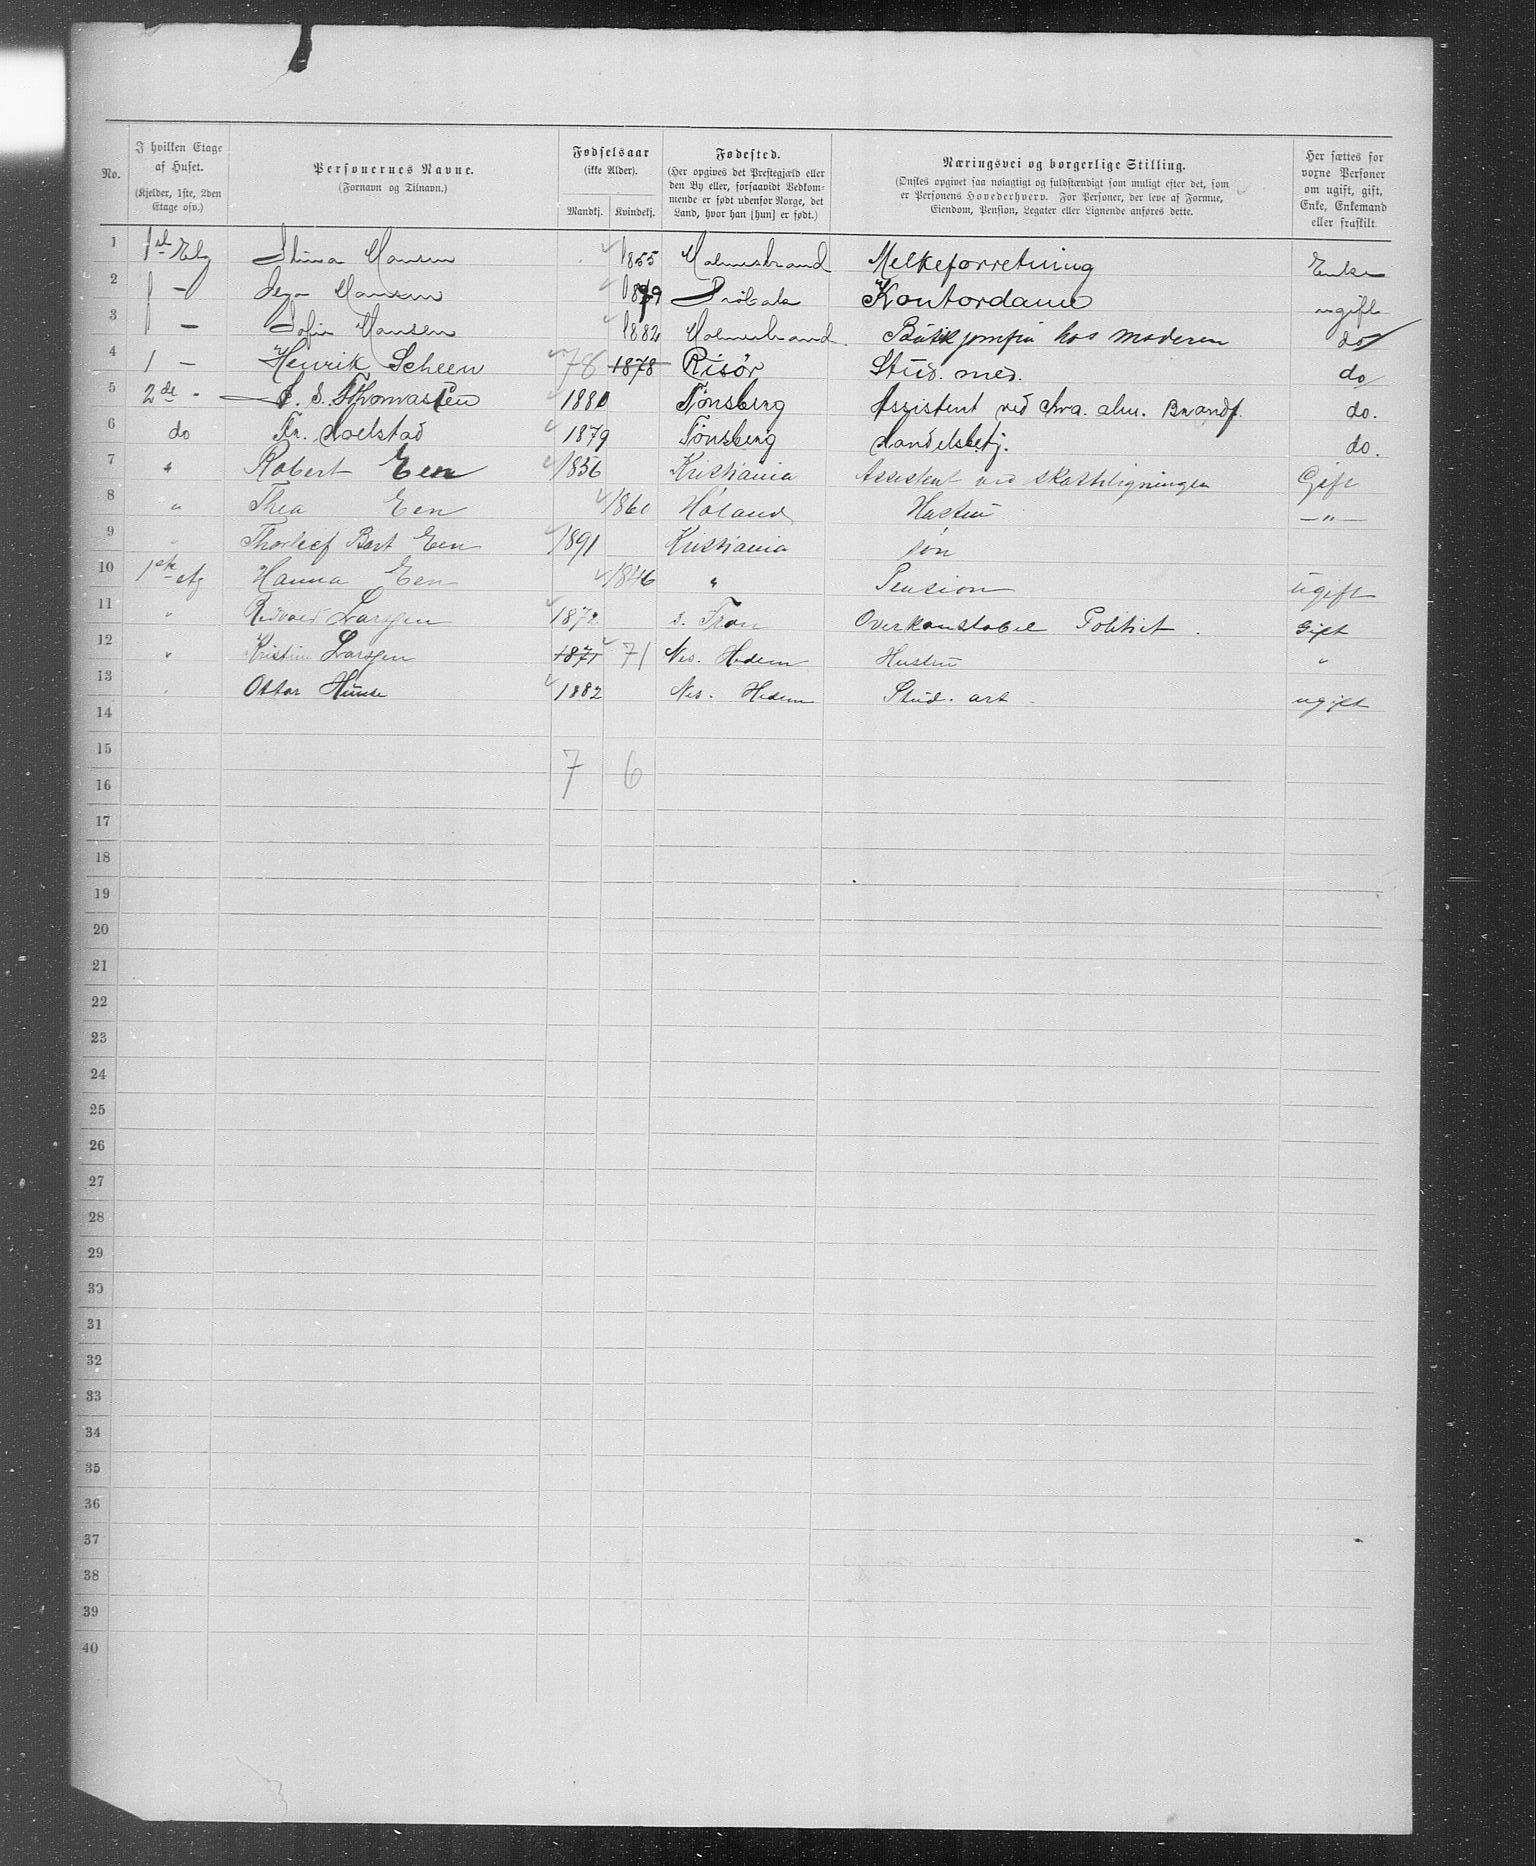 No.
I hvilken Etage af Huset. (Kjelder, 1ste, 2den Etage osv.)
Personernes Navne. (Fornavn og Tilnavn.)
Fødselsaar (ikke Alder). Mandkj. Kvindekj.
Fødested. (Her opgives det Prestegjæld eller den By eller, forsaavidt Vedkommende er født udenfor Norge, det Land, hvor han [hun] er født.)
Næringsvei og borgerlige Stilling. (Ønskes opgivet saa nøiagtigt og fuldstændigt som muligt efter det, som er Personens Hovederhverv. For Personer, der leve af Formue, Eiendom, Pension, Legater eller Lignende anføres dette.
Her sættes for vorne Personer om ugift, gift, Enke, Enkemand eller fraskilt
1 1st Etg Stina Hansen 1855 Holmestrand Melkeforretning Enke
2 1 — Hansen 1879 Drøbak Kontordame ugift
3 1 — Sofie Hansen 1882 Holmestrand Butikjomfru hos moderen do
4 1 — Henrik Scheen 78 1878 Risør Stud. med. do
5 2de " S. Thomassen 1880 Tønsberg Assistent ved Chra. alm. Brandf. do.
6 do Fr. Hoelstad 1879 Tønsberg Handelsbetj. do.
7 " Robert Een 1856 Kristiania Assistent ved skatteligningen Gift
8 " Thea Een 1860 Høland Hustru — " —
9 " Thorleif Bert Een 1891 Kristiania søn
10 1ste etg Hanna Een 1846 " Pension ugift
11 " Larssen 1872 s. Fron Overkonstabel Politiet. Gift
12 " Kristine Larssen 1871 71 Nes. Hedem Hustru "
13 " Ottar Hunse 1882 Nes. Hedem Stud. art ugift
14
15
7 6
16
17
18
19
20
21
22
23
24
25
26
27
28
29
30
31
32
33
34
35
36
37
38
39
40